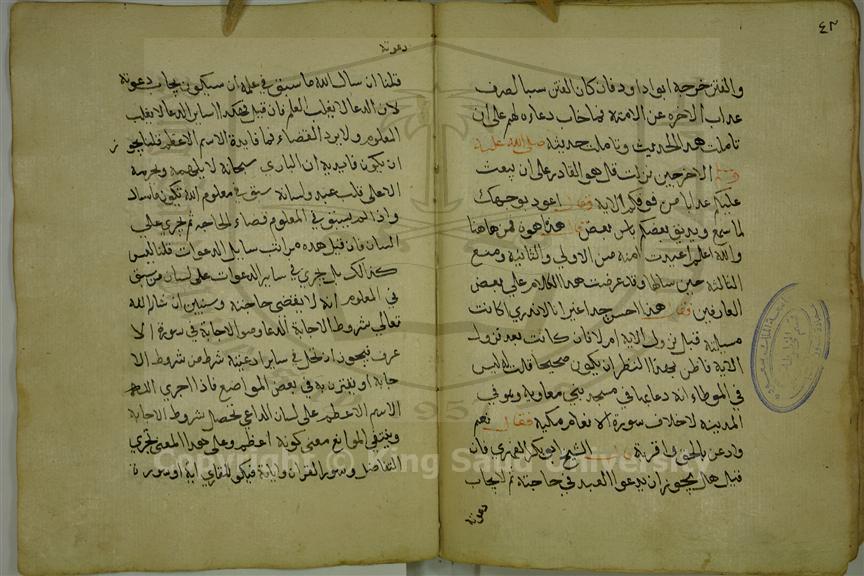 ٤٢
والفتن خرجه ابو داود فان كان الفتن سببا لصرف
عذاب الاخرة عن الامة فما خاب دعاؤه لهم على ان
تاملت هذا الحديث وتاملت حديثه صلى الله عليه
وسلم الاخر حين نزلت قل هو القادر على ان يبعث
عليكم عذابا من فوقكم الاية فقال اعوذ بوجهك
لما سمع ويذيق بعضكم باس بعض قال هذا اهون فمن هاهنا
والله اعلم اعيذت امته من الاولى والثانية ومنع
الثالثة حين سالها وقد عرضت هذا الكلام على بعض
العارفين فقال هذا حسن جدا غير انا لا ندري اكانت
مسالته قبل نزول الاية ام لا فان كانت بعد نزول
الاية فاظن بهذا النظر ان يكون صحيحا قلت له اليس
في الموطاء انه دعا بها في مسجد بني معاوية وهو في
المدينة لا خلاف سورة الانعام مكية فقال نعم
واذعن بالحق واقر به الشيخ ابو بكر الفهري فان
قيل هل يجوز ان يدعوا العبد في حاجته ثم لا يجاب
دعوته
دعوته
قلنا ان سال الله ما سبق في علمه ان سيكون يجاب دعوته
لان الدعا لا يقلب العلم فان قيل فهكذا سائر الدعا لا يقلب
المعلوم ولا يرد القضاء فما فايدة الاسم الاعظم قلنا يجوز
ان يكون فايدته ان الباري سبحانه لا يلهمه ويجريه
الا على قلب عبد ولسانه سبق في معلوم الله تكون ما سال
واذا لم يسبق في المعلوم قضاء الحاجة لم يجري على
اللسان فان قيل هذه مراتب سايل الدعوات قلنا ليس
كذالك بل يجري في ساير الدعوات على لسان من سبق
في المعلوم انه لا يقضى حاجته وسنبين ان شاء الله
تعالى شروط الاجابة للدعا وصوالاجابة في سورة الا
عراف فيجوز ان تخل في ساير ادعيته شرط من شروط الا
جابة او يقترن به في بعض المواضع فاذا اجري الله
الاسم الاعظم على لسان الداعي تحصل شروط الاجابة
وينتفي الموانع معنى كونه اعظم وعلى هذا المعنى يجري
التفاضل وسور القران واياته فيكون للقاري اية او سورة
Copyright © King Saud University